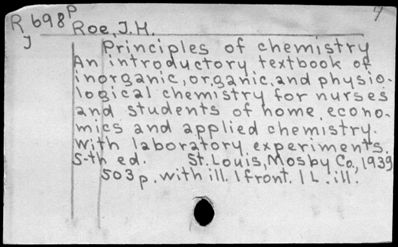 R 698P Roe, J.H. 9
J Principles of chemistry
An introductory textbook of
inorganic, organic, and physio-
logical chemistry for nurses
and students of home econo-
mics and applied chemistry.
With laboratory experiments.
5-th ed. St. Louis, Mosby Co., 1939
503 p. with ill. 1 front. 1 L. ill.